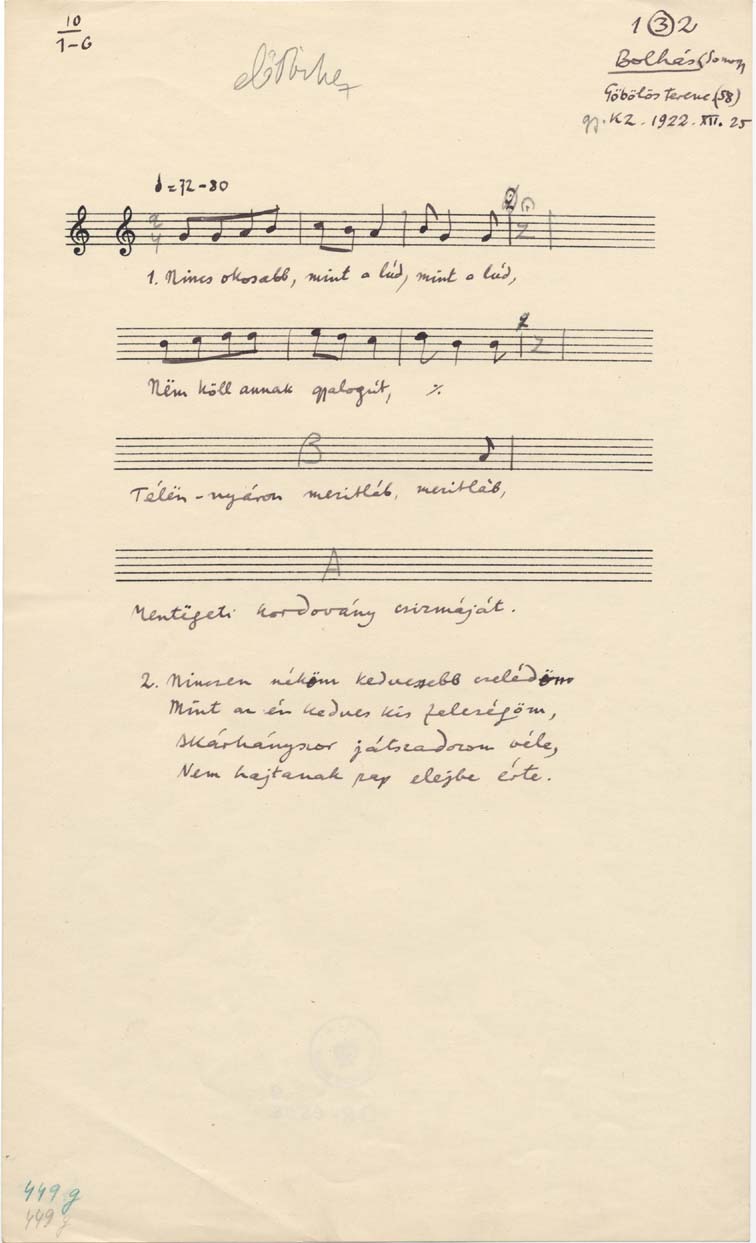 10
1-6
1 ③ 2
Bolhás (Somogy
Göbölös Ferenc (58)
gy. K Z. 1922. XII. 25
♩ = 72-80
1. Nincs okosabb, mint a lúd, mint a lúd,
Nëm köll annak gyalogút, ٪
B
Télën-nyáron mezitláb, mezitláb,
A
Mentögeti kordovány csizmáját.
2. Nincsen néköm kedvesebb cselédöm
Mint az én kedves kis feleségöm,
Akárhányszor játszadozom véle,
Nem hajtanak pap elejbe érte.
449 g
449 g